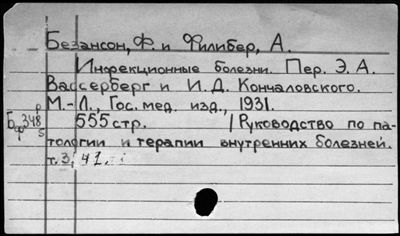 Безансон, Ф. и Филибер, А.
Инфекционные болезни. Пер. Э. А.
Вассерберг и И. Д. Кончаловского.
М.-Л., Гос. мед. изд., 1931.
555 стр. /Руководство по па-
тологии и терапии внутренних болезней.
т. 3,